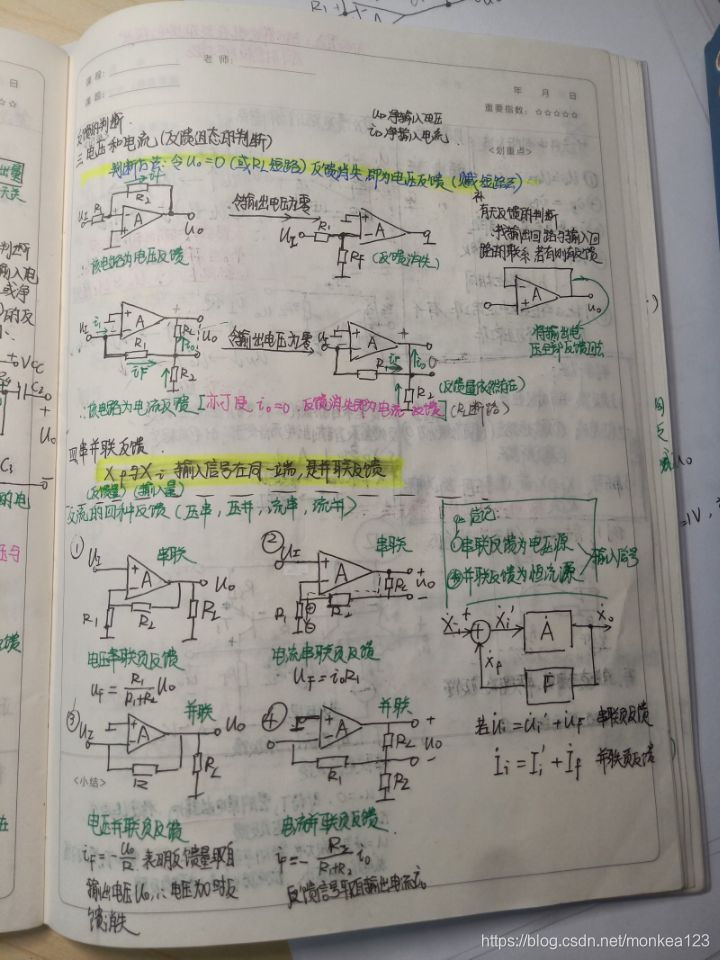 课程:
老师:
课题:
年 月 日
重要指数: ☆☆☆☆☆
<划重点>
反馈的判断.
u₀净输入电压
i₀净输入电流.
三 电压和电流 (反馈组态的判断)
判断方法: 令u₀=0 (或RL短路) 反馈消失, 即为电压反馈
补
有无反馈的判断
∴找输出回路与输入回
路的联系 若有则有反馈
令输出电压为零
(反馈消失)
∴该电路为电压反馈
将输出电
压全部反馈回去
令输出电压为零
(反馈量依然存在)
∴该电路为电流反馈 [亦可使 i₀=0, 反馈消失即为电流反馈] (RL断路)
四 串并联反馈.
X_f与X_i 输入信号在同一端, 是并联反馈
(反馈量) (输入量)
交流的四种反馈 (压串, 压并, 流串, 流并)
串联反馈为电压源
并联反馈为恒流源
输入信号
① U_I 串联 A u₀ R₁ R₂ RL
② U_I 串联 A RL u₀ R₁ R₂
电压串联负反馈
u_F = R₁/(R₁+R₂) u₀
电流串联负反馈
u_F = i₀R₁
Ẋi + Ẋi' Ȧ Ẋo
Ẋf F
③ U_I 并联 A U₀ R RL
④ 并联 A RL u₀ R₁ R₂
若 u̇i = u̇i' + u̇F 串联负反馈
İi = Ii' + İf 并联负反馈
<小结>
电压并联负反馈
i_F = -u₀/R 表明反馈量取自
输出电压U₀, ∴电压为0时反
馈消失
电流并联负反馈.
i_F = - R₂/(R₁+R₂) i₀
反馈信号取自输出电流i₀
https://blog.csdn.net/monkea123